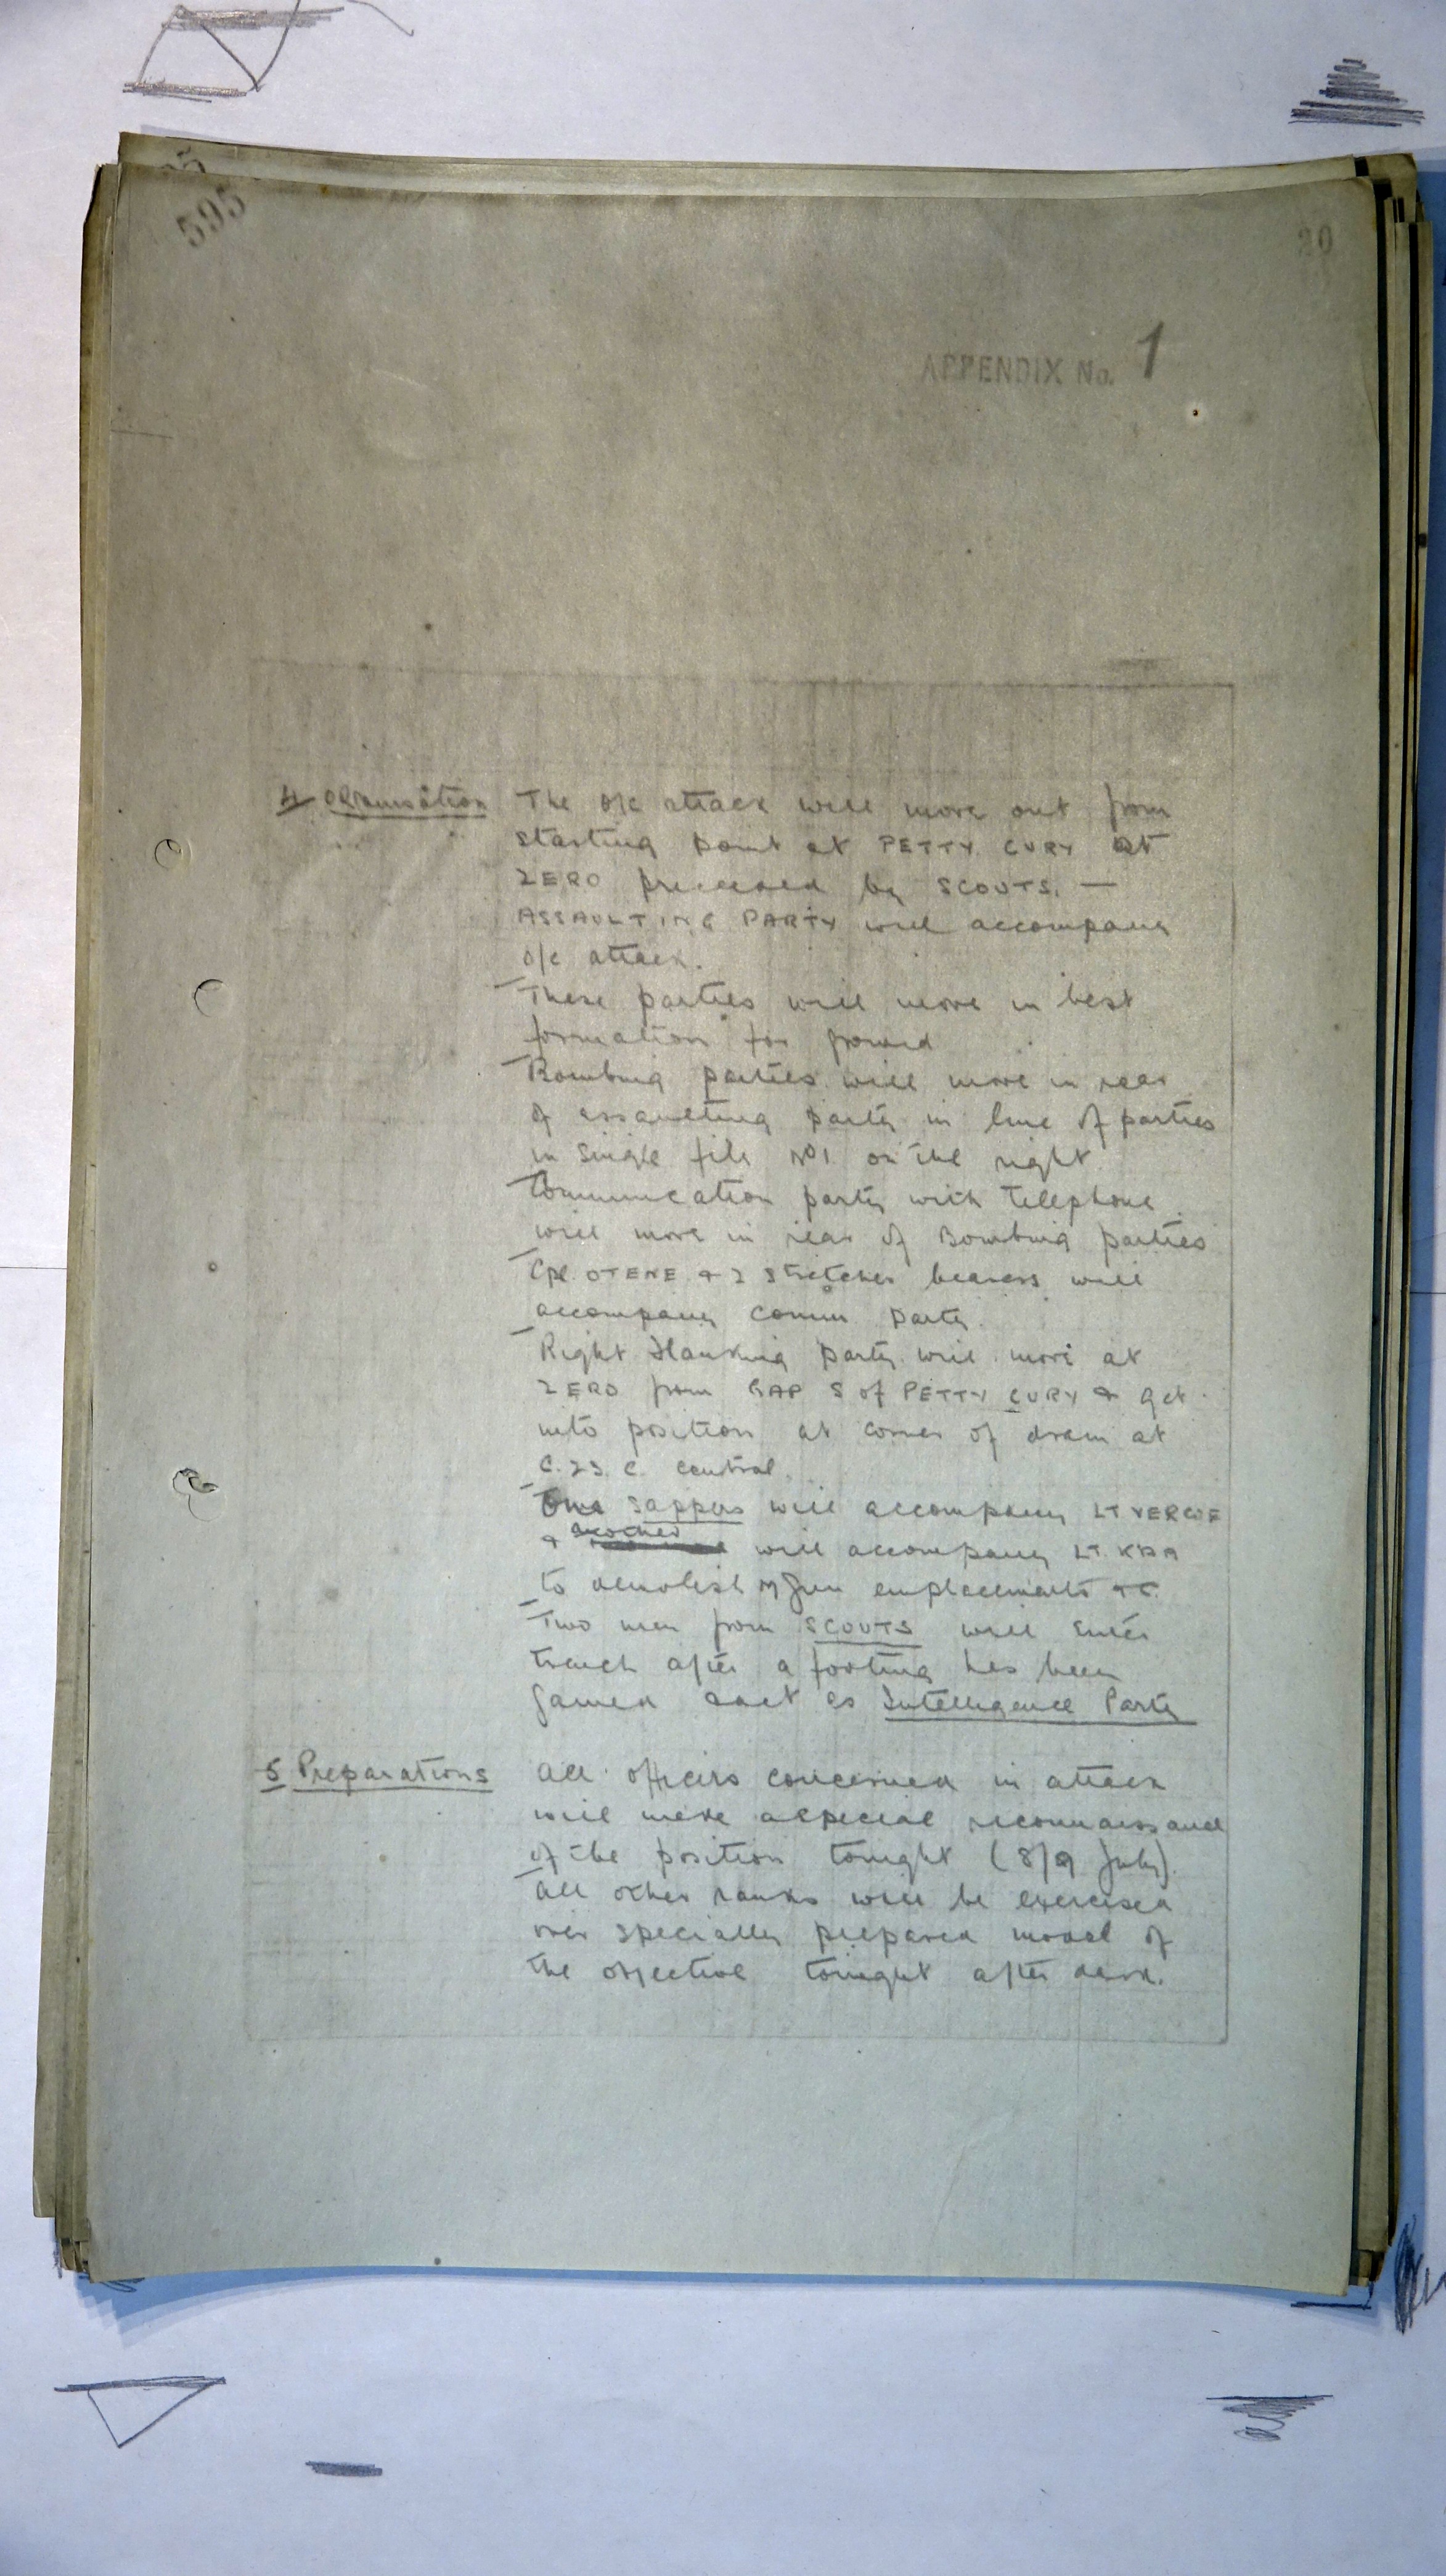 595
20
APPENDIX No. 1
4 Organisation The o/c attack will move out from
starting point at PETTY CURY at
ZERO preceded by SCOUTS. —
ASSAULTING PARTY will accompany
o/c attack.
These parties will move in best
formation for ground
Bombing parties will move in rear
of assaulting party in line of parties
in single file No 1 on the right
Communication party with Telephone
will move in rear of Bombing parties
Cpl. OTENE & 2 stretcher bearers will
accompany Comm party.
Right Flanking party will move at
ZERO from GAP S of PETTY CURY & get
into position at corner of drain at
C. 23. c. central.
One sappers will accompany LT VERCOE
& another will accompany LT. KRA
to demolish M gun emplacements &c.
Two men from SCOUTS will enter
trench after a footing has been
gained & act as Intelligence Party
5 Preparations All officers concerned in attack
will make a special reconnaissance
of the position tonight (8/9 July).
All other ranks will be exercised
over specially prepared model of
the objective tonight after dark.